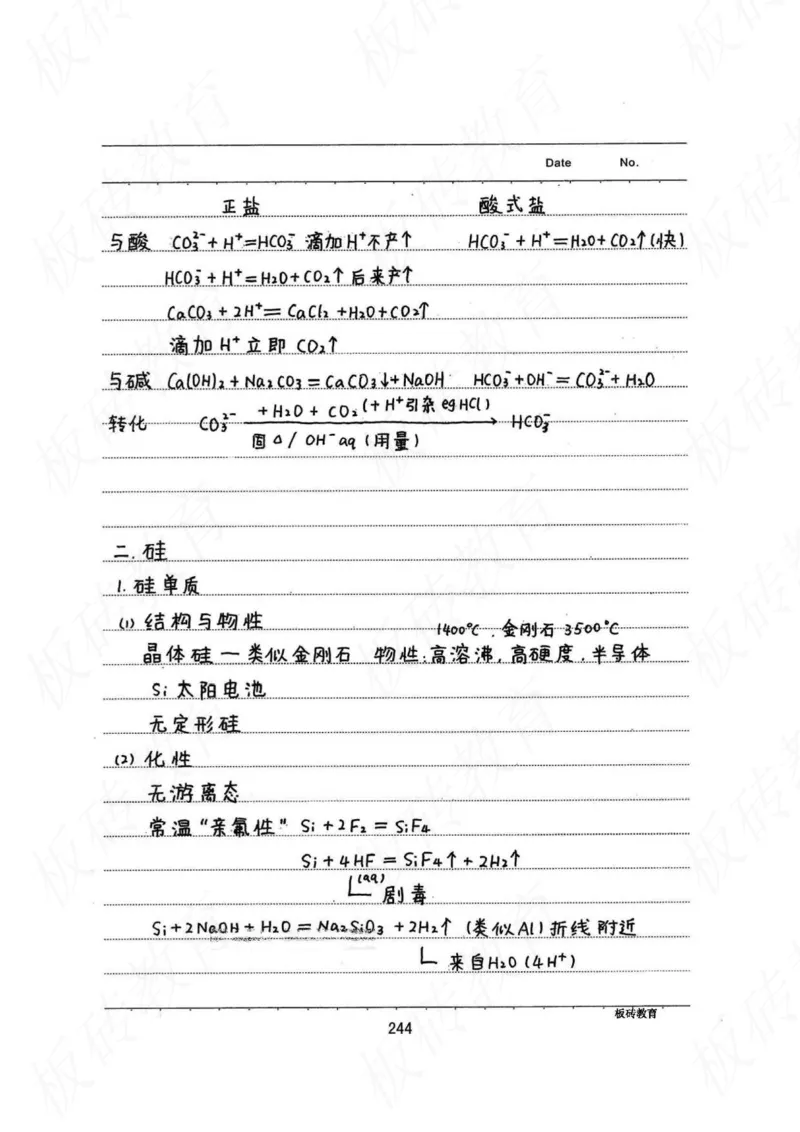 Date No.
正盐 酸式盐
与酸 CO₃²⁻+H⁺=HCO₃⁻ 滴加H⁺不产↑ HCO₃⁻+H⁺=H₂O+CO₂↑(快)
HCO₃⁻+H⁺=H₂O+CO₂↑ 后来产↑
CaCO₃+2H⁺=CaCl₂+H₂O+CO₂↑
滴加H⁺立即CO₂↑
与碱 Ca(OH)₂+Na₂CO₃=CaCO₃↓+NaOH HCO₃⁻+OH⁻=CO₃²⁻+H₂O
转化 CO₃²⁻ +H₂O+CO₂(+H⁺引杂 eg HCl) HCO₃⁻
固△/OH⁻aq(用量)
二.硅
1.硅单质
(1)结构与物性
1400℃.金刚石3500℃
晶体硅—类似金刚石 物性:高溶沸,高硬度.半导体
Si太阳电池
无定形硅
(2)化性
无游离态
常温"亲氟性" Si+2F₂=SiF₄
Si+4HF=SiF₄↑+2H₂↑
(aq)
剧毒
Si+2NaOH+H₂O=Na₂SiO₃+2H₂↑(类似Al)折线附近
来自H₂O(4H⁺)
板砖教育
244